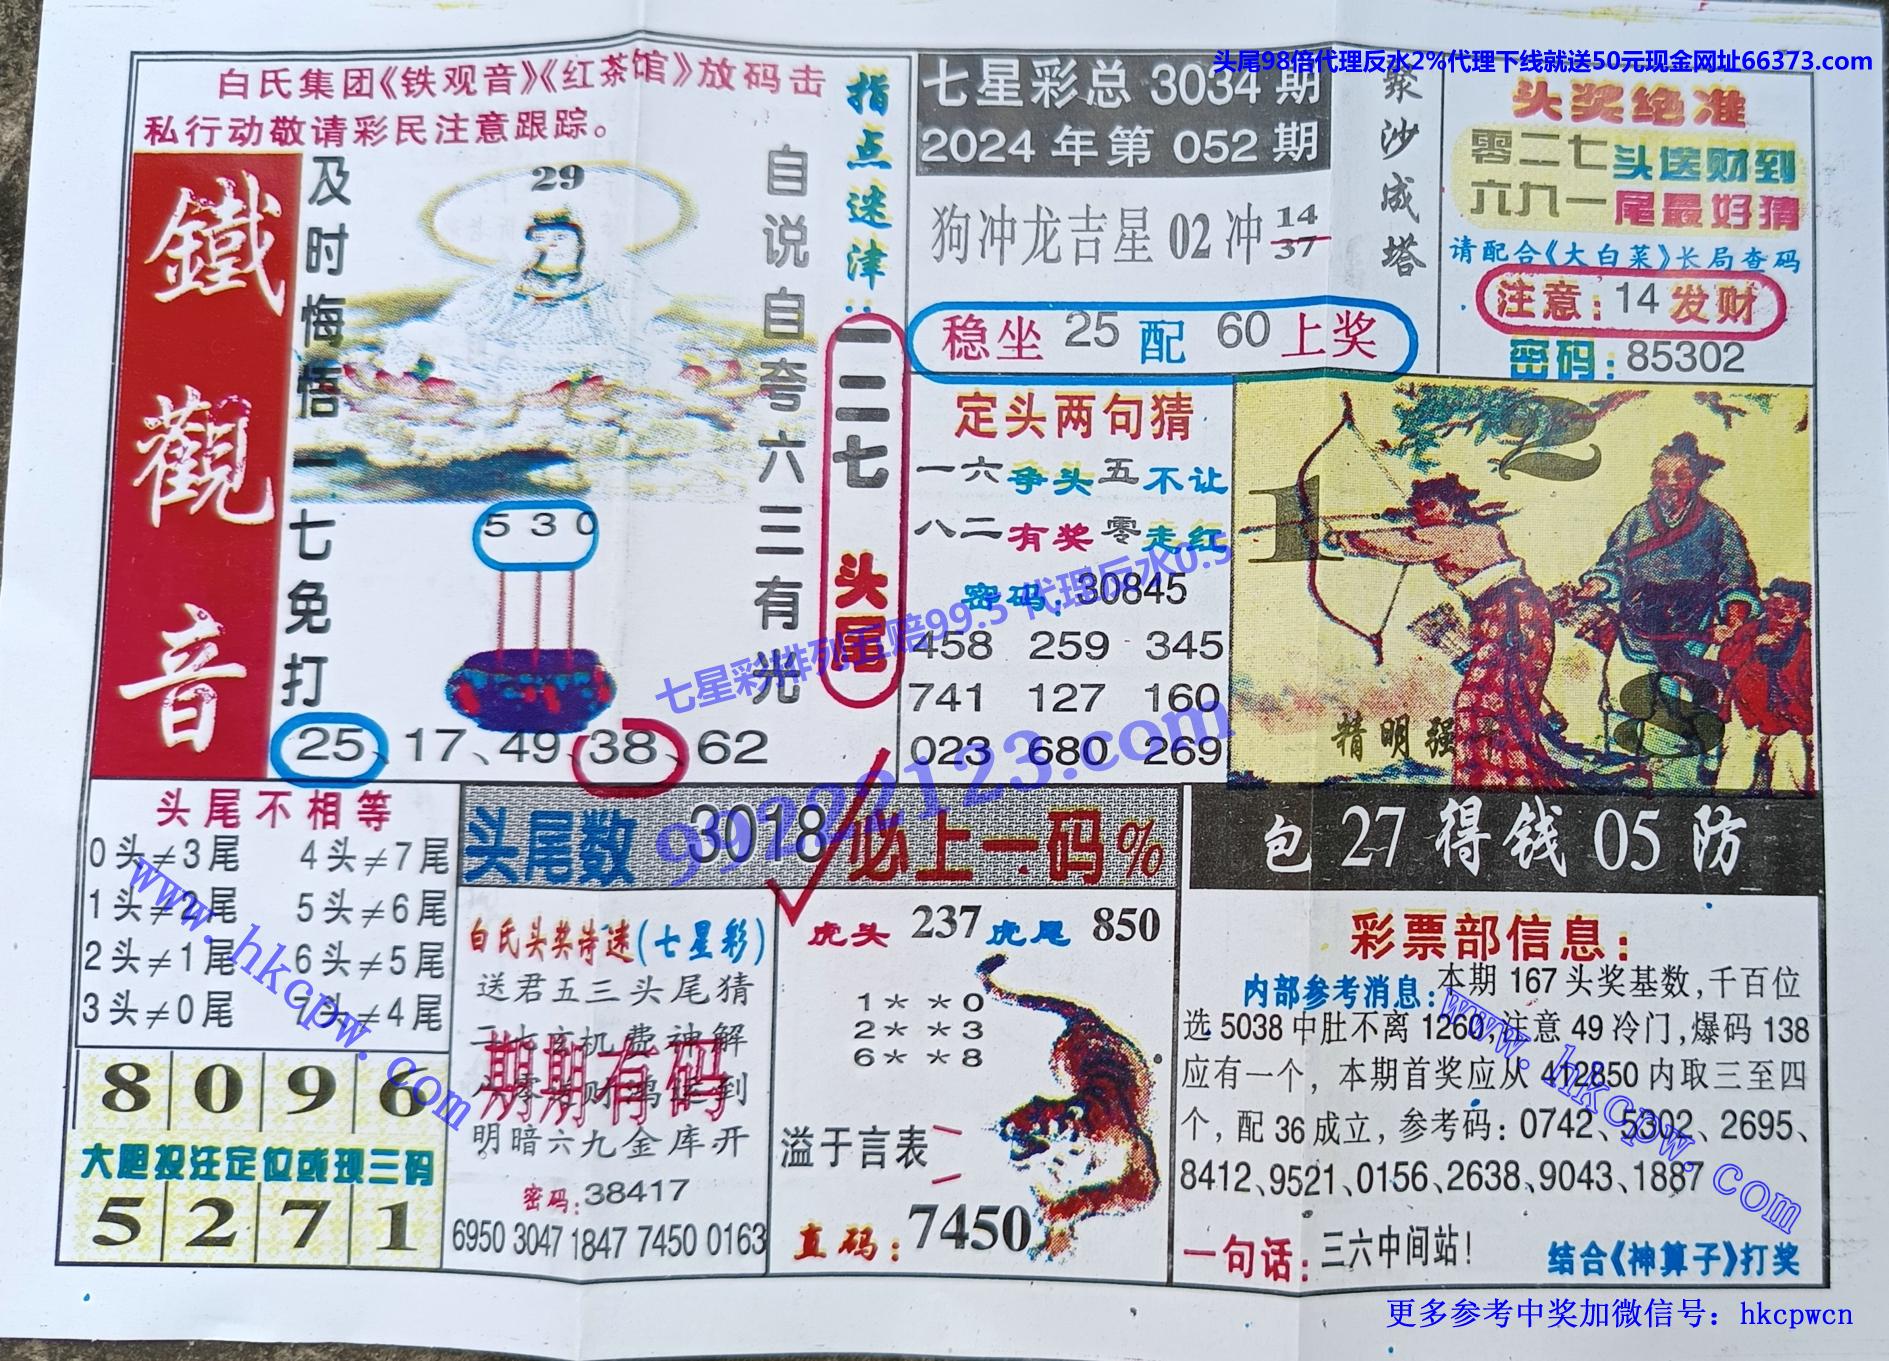 头尾98倍代理反水2%代理下线就送50元现金网址66373.com
白氏集团《铁观音》《红茶馆》放码击
私行动敬请彩民注意跟踪。
鐵觀音
及时悔悟一七免打
29
自说自夸六三有光
530
25、17、49、38、62
指点迷津:
一二七头尾
七星彩总3034期
2024年第052期
狗冲龙吉星02冲14
37
聚沙成塔
稳坐25配60上奖
头奖绝准
零二七头送财到
六九一尾最好猜
请配合《大白菜》长局查码
注意:14发财
密码:85302
定头两句猜
一六争头五不让
八二有奖零走红
密码:30845
458 259 345
741 127 160
023 680 269
1
2
8
精明强干
包27得钱05防
七星彩排列五赔99.5 代理反水0.5
99222123.com
头尾不相等
0头≠3尾 4头≠7尾
1头≠2尾 5头≠6尾
2头≠1尾 6头≠5尾
3头≠0尾 7头≠4尾
8 0 9 6
大胆投注定位或现三码
5 2 7 1
头尾数3018必上一码%
白氏头奖诗迷(七星彩)
送君五三头尾猜
二七玄机费神解
八零
财
到
明暗六九金库开
期期有码
密码:38417
6950 3047 1847 7450 0163
虎头237虎尾850
1**0
2**3
6**8
溢于言表
直码:7450
彩票部信息:
内部参考消息:本期167头奖基数,千百位
选5038中肚不离1260,注意49冷门,爆码138
应有一个,本期首奖应从412850内取三至四
个,配36成立,参考码:0742、5302、2695、
8412、9521、0156、2638、9043、1887
一句话:三六中间站!
结合《神算子》打奖
www.hkcpw.com
www.hkcpw.com
更多参考中奖加微信号:hkcpwcn